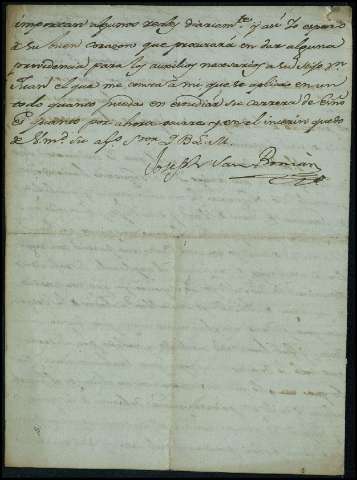 importan algunos reales diariamte. y asi lo espero
a su buen corazon que procurará en dar alguna
providencia para los auxilios necesarios a su Hijo Dn
Juan el que me consta a mi que se aplica en un
todo quanto puede en estudiar su carrera de
quanto por ahora ocurre y en el interin quedo
de Vmd. su afo. Q B L M
Joseph San Roman